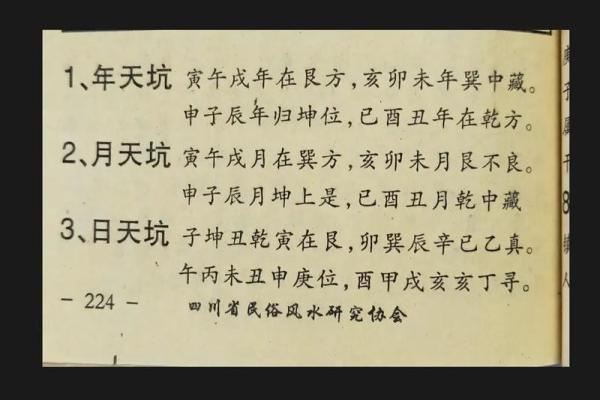 1、年天坑 寅午戌年在艮方,亥卯未年巽中藏。
申子辰年归坤位,巳酉丑年在乾方。
2、月天坑 寅午戌月在巽方,亥卯未月艮不良。
申子辰月坤上是,巳酉丑月乾中藏
3、日天坑 子坤丑乾寅在艮,卯巽辰辛巳乙真。
午丙未丑申庚位,酉甲戌亥亥丁寻。
- 224 -
四川省民俗风水研究协会